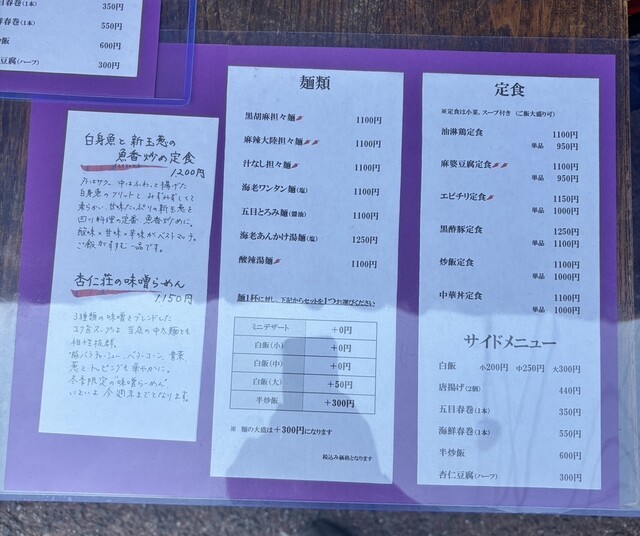 五目春巻(1本) 350円
550円
600円
300円
白身魚と新玉葱の
魚香炒め定食
1200円
外はサクッ、中はふわっと揚げた
白身魚のフリットと みずみずしくて
柔らかい、甘味たっぷりの新玉葱を
四川料理の定番 魚香炒めに。
酸味×甘味×辛味がベストマッチ。
ご飯がすすむ一品です。
杏仁荘の味噌らーめん
1150円
3種類の味噌をブレンドした
コク旨スープは 当店の中太麺とも
相性抜群。
豚バラチャーシュー、バターコーン、青菜
葱と トッピングも華やかに。
冬季限定の味噌らーめん
いよいよ今週末までとなります。
麺類
黒胡麻担々麺 1100円
麻辣大陸担々麺 1100円
汁なし担々麺 1100円
海老ワンタン麺(塩) 1100円
五目とろみ麺(醤油) 1100円
海老あんかけ湯麺(塩) 1250円
酸辣湯麺 1100円
麺1杯に対し、下記からセットを1つお選びください
ミニデザート +0円
白飯(小) +0円
白飯(中) +0円
白飯(大) +50円
半炒飯 +300円
※ 麺の大盛は+300円になります
税込み価格となります
定食
※定食は小菜、スープ付き (ご飯大盛り可)
油淋鶏定食 1100円
単品 950円
麻婆豆腐定食 1100円
単品 950円
エビチリ定食 1150円
単品 1000円
黒酢豚定食 1250円
単品 1100円
炒飯定食 1100円
単品 1000円
中華丼定食 1100円
単品 1000円
サイドメニュー
白飯 小200円 中250円 大300円
唐揚げ(2個) 440円
五目春巻(1本) 350円
海鮮春巻(1本) 550円
半炒飯 600円
杏仁豆腐(ハーフ) 300円